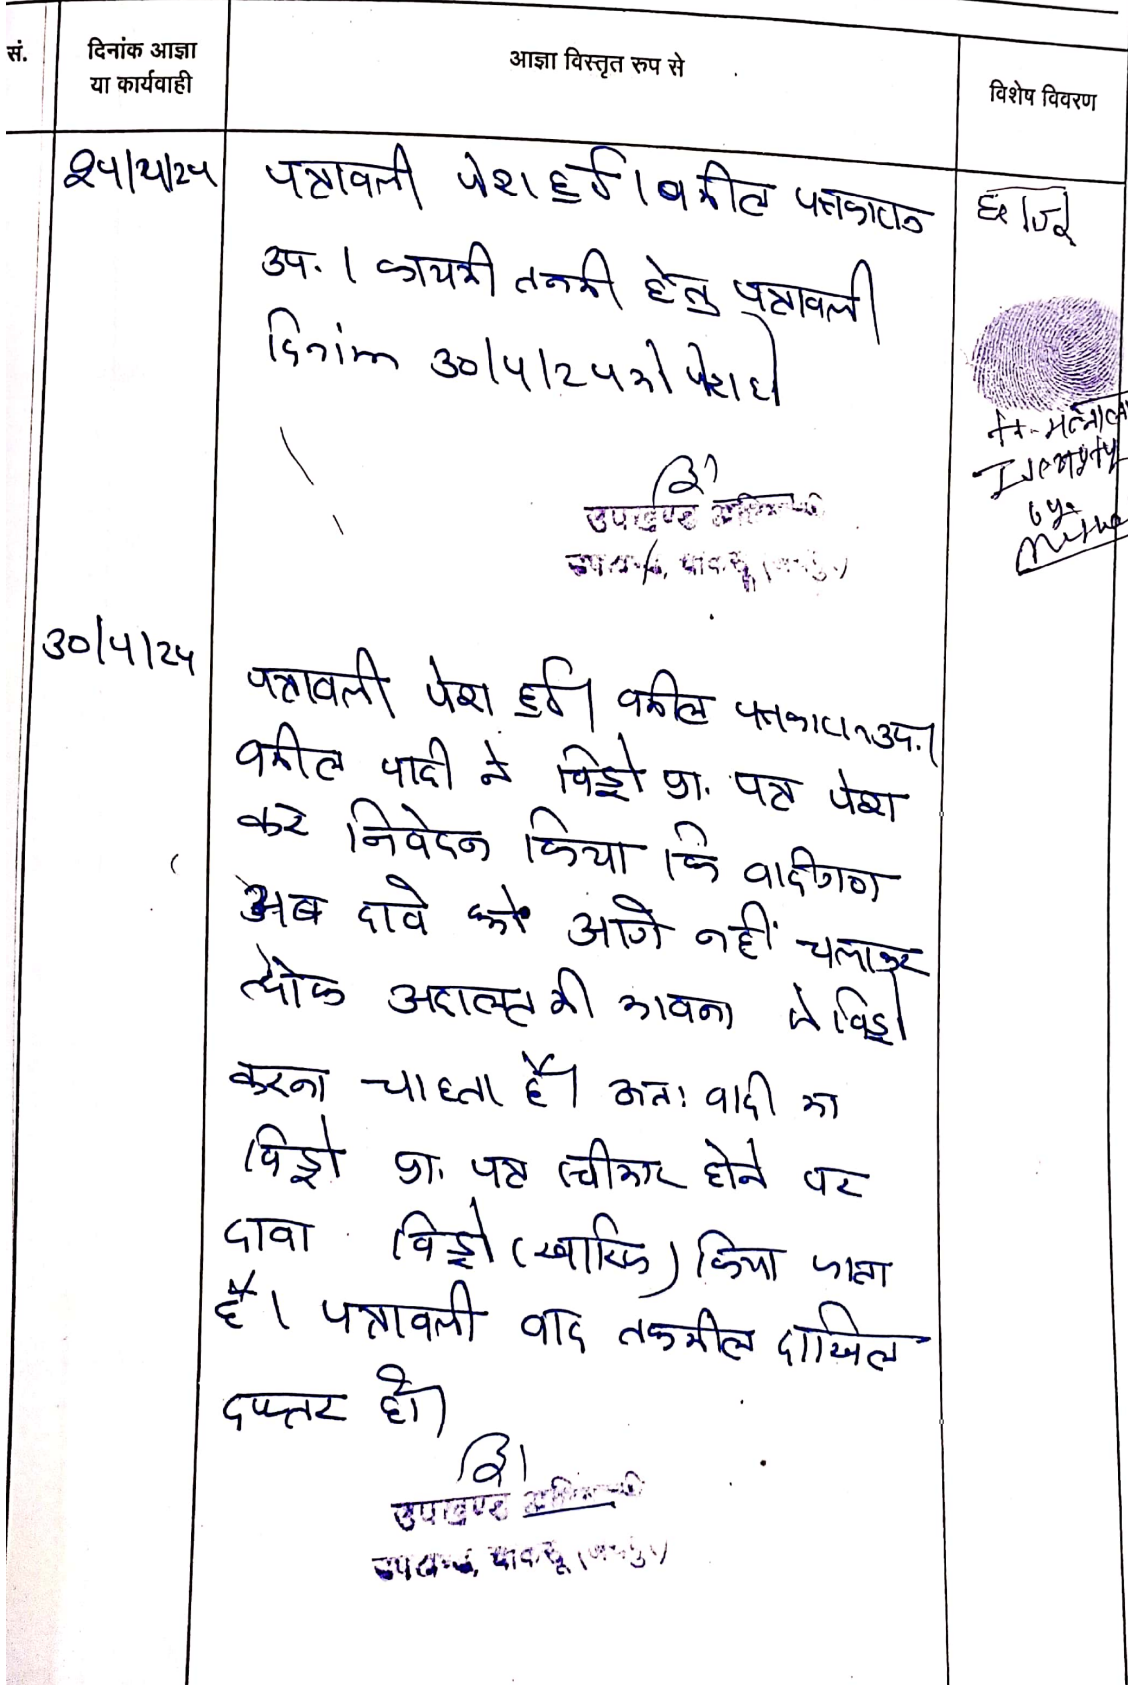 सं.
दिनांक आज्ञा
या कार्यवाही
आज्ञा विस्तृत रुप से
विशेष विवरण
पत्रावली पेश हुई। वकील पक्षकारान
उप. । कायमी तनकी हेतु पत्रावली
दिनांक 30/4/24 को पेश हो
उपखण्ड अधिकारी
उपखण्ड, चाकसू (जयपुर)
by
30/4/24
पत्रावली पेश हुई। वकील पक्षकारान उप.।
वकील वादी ने विड्रो प्रा. पत्र पेश
कर निवेदन किया कि वादीगण
अब दावे को आगे नहीं चलाकर
लोक अदालत की भावना से विड्रो
करना चाहता है। अतः वादी का
विड्रो प्रा. पत्र स्वीकार होने पर
दावा विड्रो (खारिज) किया जाता
है। पत्रावली बाद तकमील दाखिल
दफ्तर हो।
उपखण्ड अधिकारी
उपखण्ड, चाकसू (जयपुर)